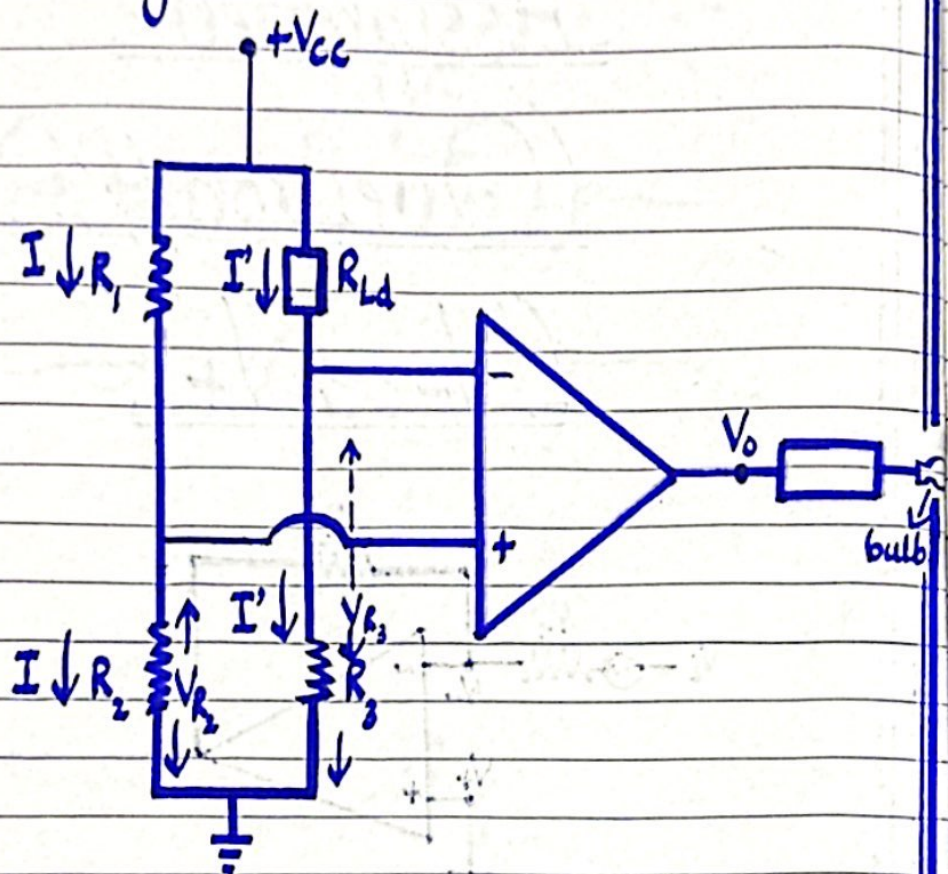 +Vcc
I ↓ R₁
I' ↓
R_Ld
−
V₀
+
bulb
I' ↓
V_R₃
R₃
I ↓ R₂
V_R₂